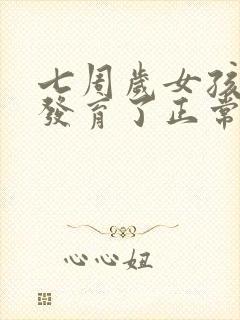 七周歲女孩
發育了正常
心心妞